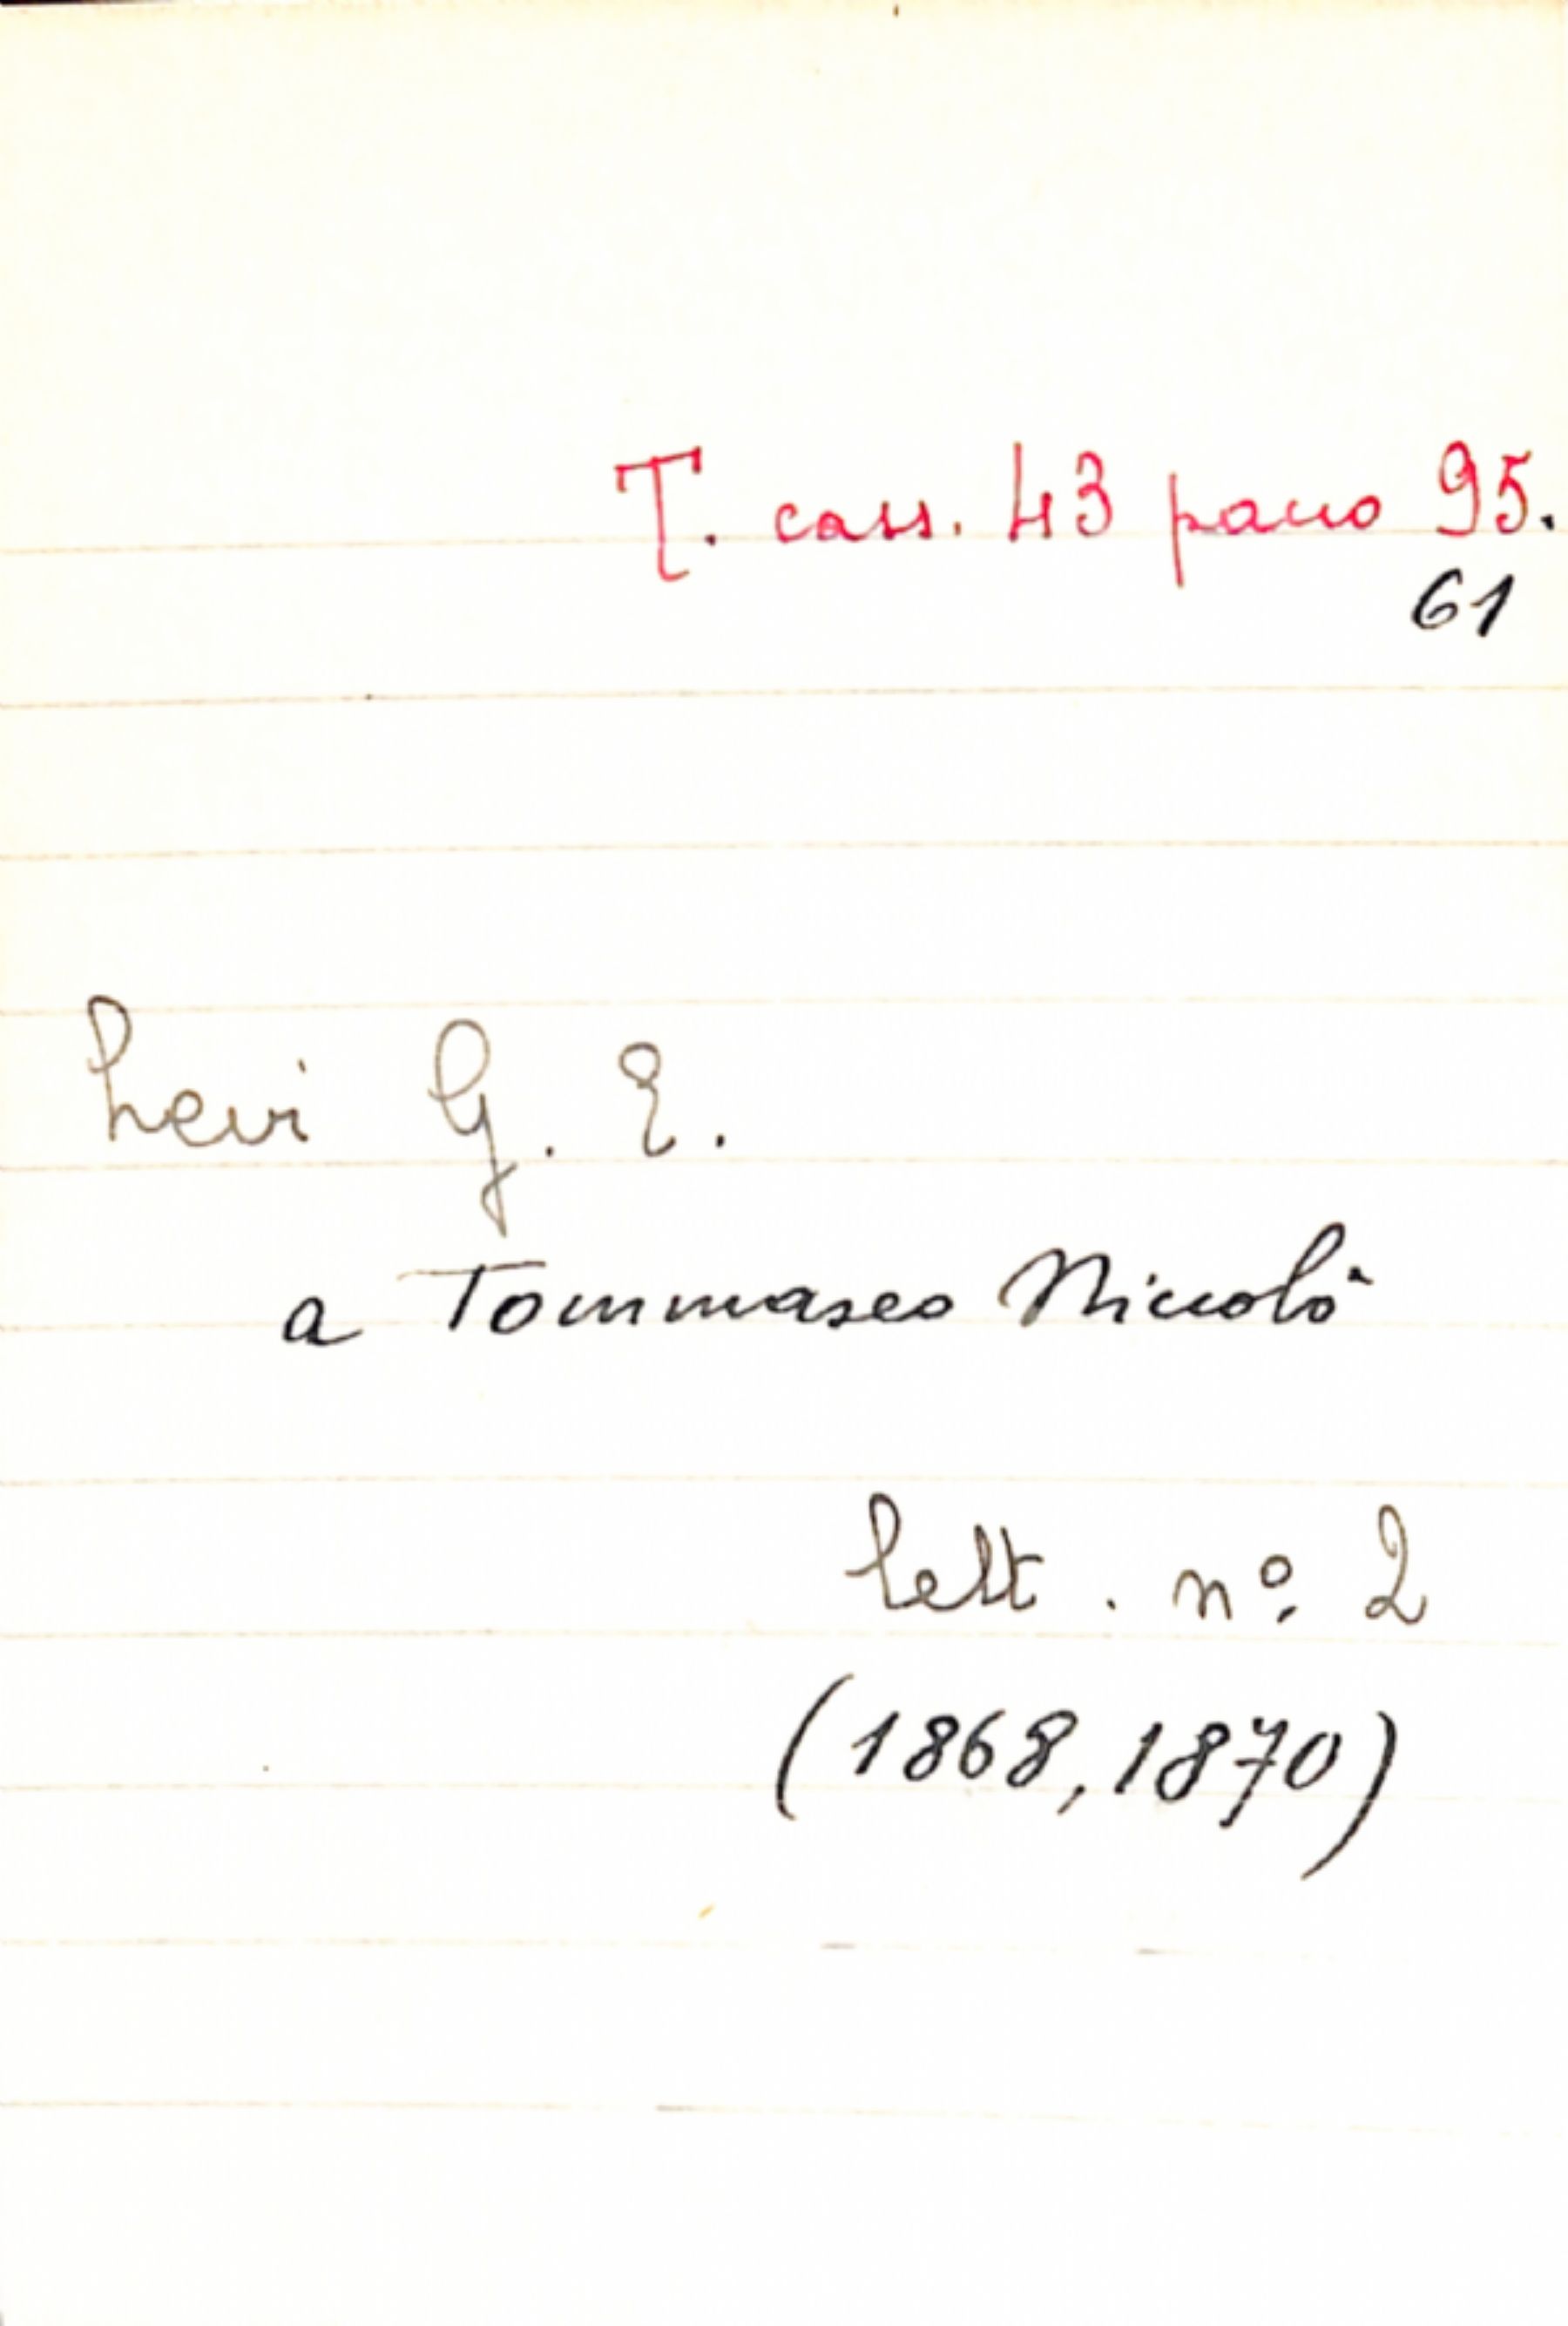 T. cass. 43 pacco 95.
61
Levi G. E.
a Tommaseo Niccolò
lett. nº 2
(1868, 1870)